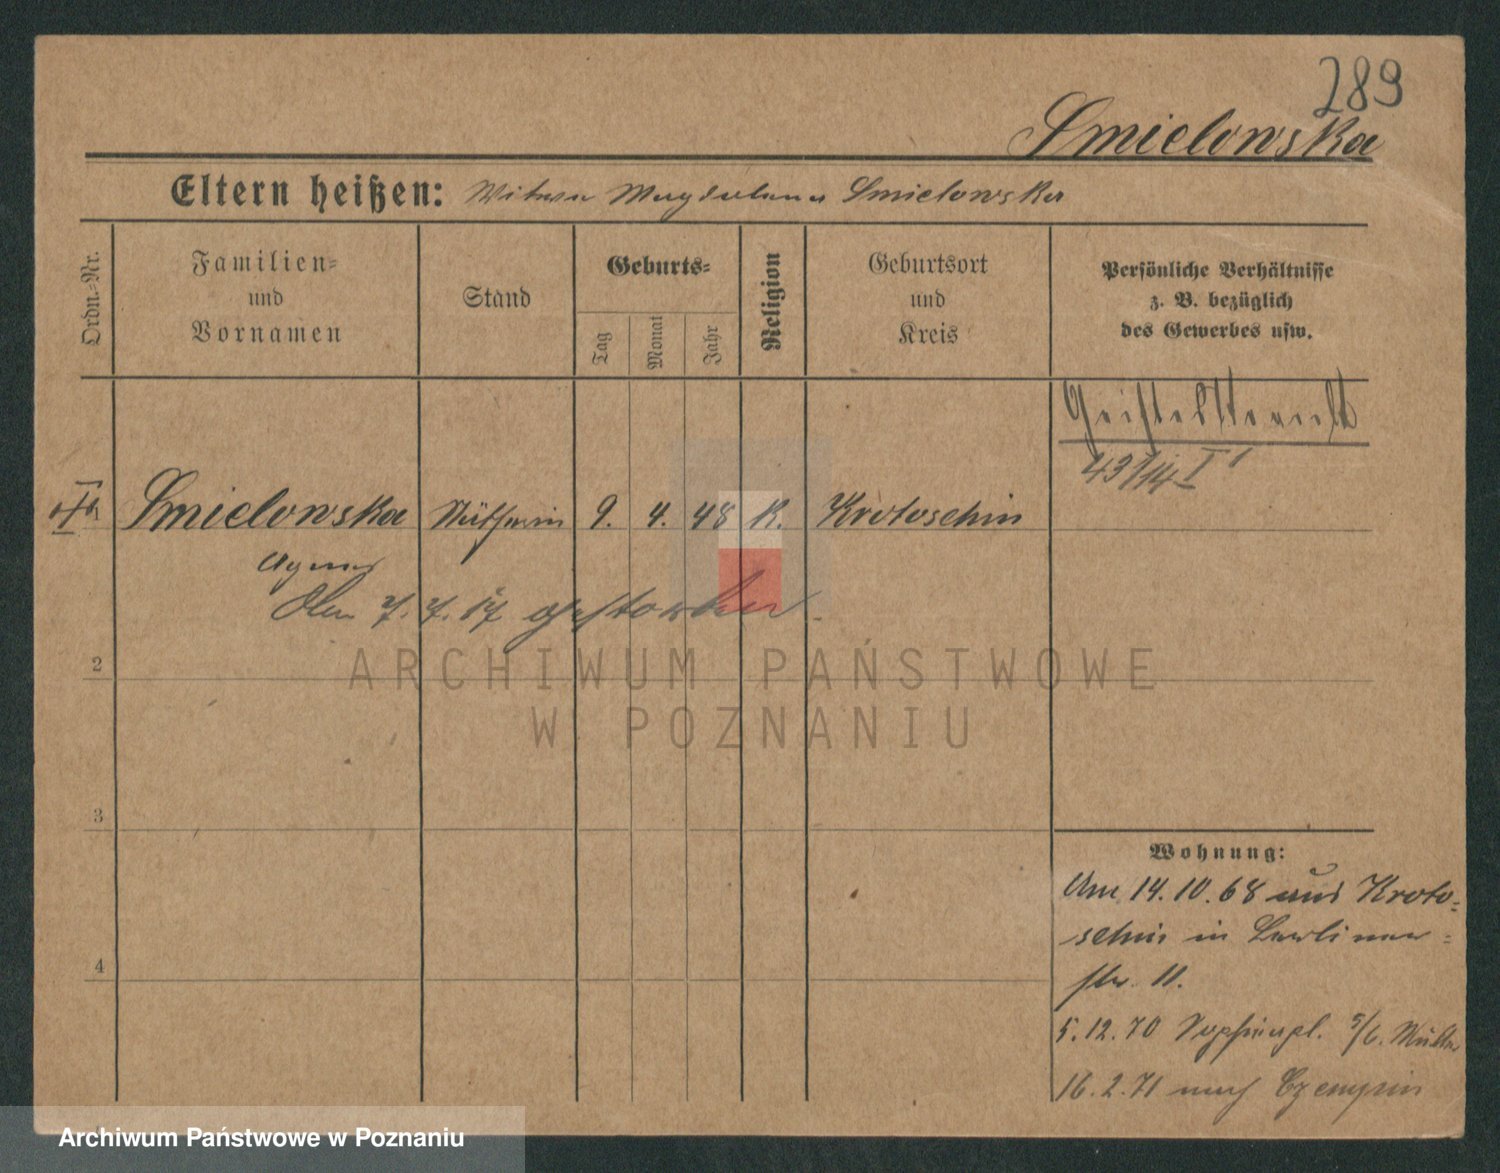 289
Smielowska
Eltern heißen: Witwe Magdalena Smielowska
Ordn.-Nr.
Familien-
und
Vornamen
Stand
Geburts-
Tag
Monat
Jahr
Religion
Geburtsort
und
Kreis
Persönliche Verhältnisse
z. B. bezüglich
des Gewerbes usw.
43/14 I
Smielowska
9. 4. 48 K. Krotoschin
Agnes
gestorben.
2
3
4
Wohnung:
Am 14.10.68 aus Kroto-
schin in Berliner-
str. 11.
5.12.70
16.2.71 nach Czempin
ARCHIWUM PAŃSTWOWE
W POZNANIU
Archiwum Państwowe w Poznaniu